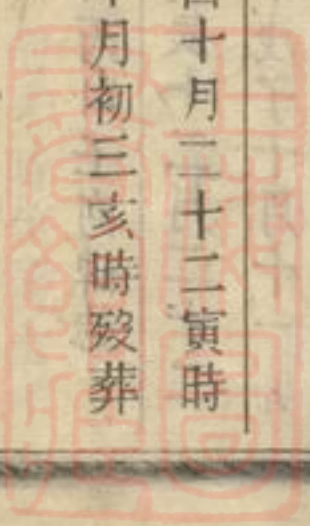 十月二十二寅時
月初三亥時歿葬